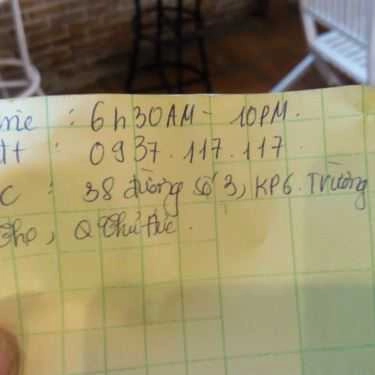 : 6h30AM - 10PM.
đt : 0937.117.117.
C : 38 đường số 3, KP6. Trường
Thọ, Q Thủ Đức.